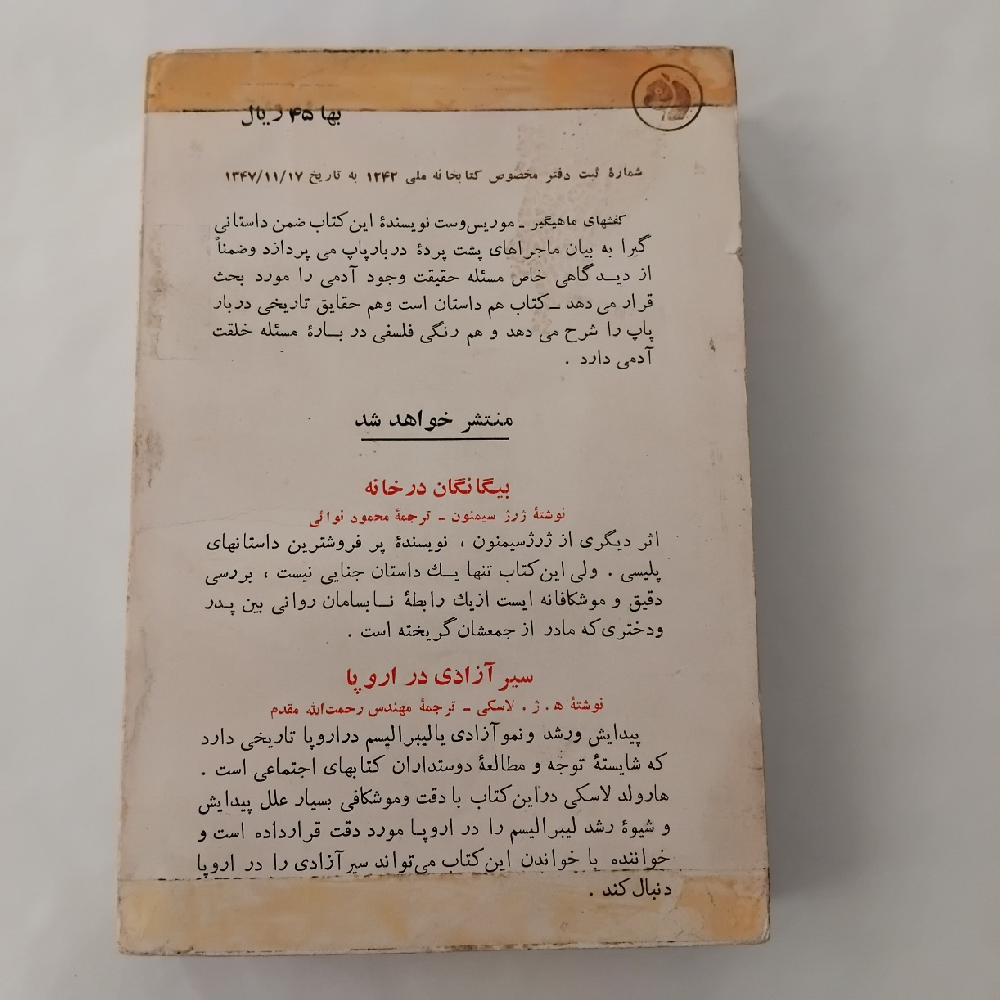 بها ۴۵ ریال
شمارهٔ ثبت دفتر مخصوص کتابخانه ملی ۱۲۴۲ به تاریخ ۱۳۴۷/۱۱/۱۷
کفشهای ماهیگیر ـ موریس‌وست نویسندهٔ این کتاب ضمن داستانی
گیرا به بیان ماجراهای پشت پردهٔ دربار پاپ می پردازد وضمناً
از دیدگاهی خاص مسئله حقیقت وجود آدمی را مورد بحث
قرار می دهد ـ کتاب هم داستان است وهم حقایق تاریخی دربار
پاپ را شرح می دهد و هم رنگی فلسفی در بارهٔ مسئله خلقت
آدمی دارد .
منتشر خواهد شد
بیگانگان درخانه
نوشتهٔ ژرژ سیمنون ـ ترجمهٔ محمود نوائی
اثر دیگری از ژرژسیمنون ، نویسندهٔ پر فروشترین داستانهای
پلیسی . ولی این کتاب تنها یك داستان جنایی نیست ، بررسی
دقیق و موشکافانه ایست ازیك رابطهٔ نابسامان روانی بین پدر
ودختری که مادر از جمعشان گریخته است .
سیر آزادی در اروپا
نوشتهٔ ه . ژ . لاسکی ـ ترجمهٔ مهندس رحمت‌الله مقدم
پیدایش ورشد ونمو آزادی یالیبرالیسم دراروپا تاریخی دارد
که شایستهٔ توجه و مطالعهٔ دوستداران کتابهای اجتماعی است .
هارولد لاسکی دراین کتاب با دقت وموشکافی بسیار علل پیدایش
و شیوهٔ رشد لیبرالیسم را در اروپا مورد دقت قرارداده است و
خواننده با خواندن این کتاب می‌تواند سیر آزادی را در اروپا
دنبال کند .